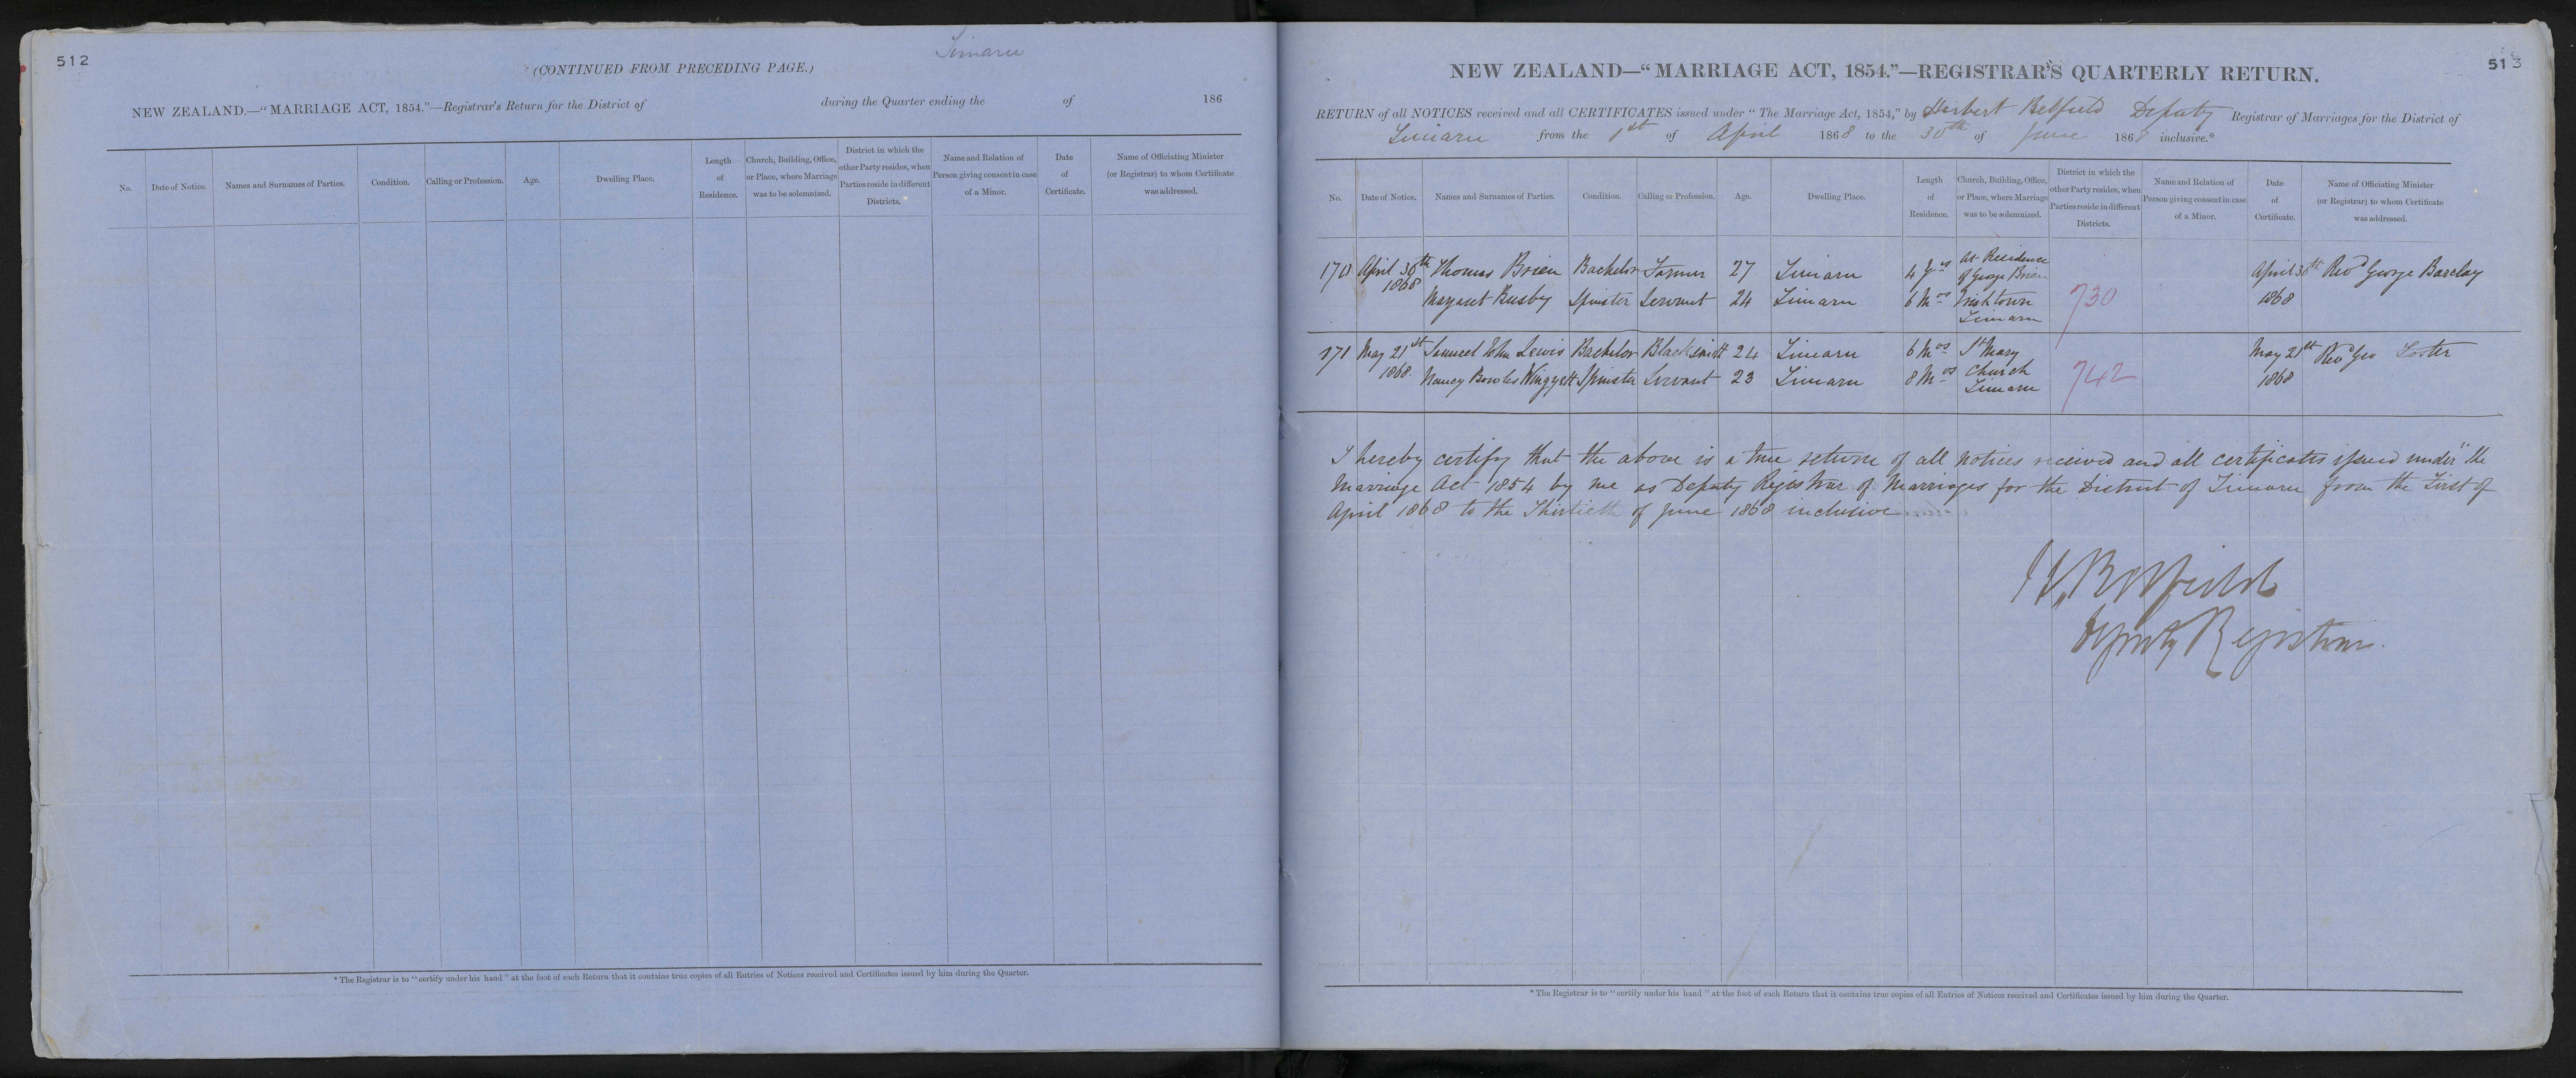 512
Timaru
(CONTINUED FROM PRECEDING PAGE.)
NEW ZEALAND.—“MARRIAGE ACT, 1854.”—Registrar's Return for the District of during the Quarter ending the of 186
No. Date of Notice. Names and Surnames of Parties. Condition. Calling or Profession. Age. Dwelling Place. Length of Residence. Church, Building, Office, or Place, where Marriage was to be solemnized. District in which the other Party resides, when Parties reside in different Districts. Name and Relation of Person giving consent in case of a Minor. Date of Certificate. Name of Officiating Minister (or Registrar) to whom Certificate was addressed.
* The Registrar is to “certify under his hand” at the foot of each Return that it contains true copies of all Entries of Notices received and Certificates issued by him during the Quarter.
513
NEW ZEALAND—“MARRIAGE ACT, 1854.”—REGISTRAR'S QUARTERLY RETURN.
RETURN of all NOTICES received and all CERTIFICATES issued under “The Marriage Act, 1854,” by Herbert Belfield Deputy Registrar of Marriages for the District of
Timaru from the 1st of April 1868 to the 30th of June 1868 inclusive.*
No. Date of Notice. Names and Surnames of Parties. Condition. Calling or Profession. Age. Dwelling Place. Length of Residence. Church, Building, Office, or Place, where Marriage was to be solemnized. District in which the other Party resides, when Parties reside in different Districts. Name and Relation of Person giving consent in case of a Minor. Date of Certificate. Name of Officiating Minister (or Registrar) to whom Certificate was addressed.
170 April 30th 1868 Thomas Brien Bachelor Farmer 27 Timaru 4 Yrs At Residence of George Brien April 30th Revd George Barclay
Margaret Busby Spinster Servant 24 Timaru 6 Mos Irishtown Timaru 730 1868
171 May 21st 1868. Samuel John Lewis Bachelor Blacksmith 24 Timaru 6 Mos St Mary May 21st Revd Geo Foster
Nancy Bowles Spinster Servant 23 Timaru 8 Mos Church Timaru 742 1868
I hereby certify that the above is a true return of all notices received and all certificates issued under “the
Marriage Act 1854 by me as Deputy Registrar of Marriages for the District of Timaru from the First of
April 1868 to the Thirtieth of June 1868 inclusive
H. Belfield
Deputy Registrar.
* The Registrar is to “certify under his hand” at the foot of each Return that it contains true copies of all Entries of Notices received and Certificates issued by him during the Quarter.